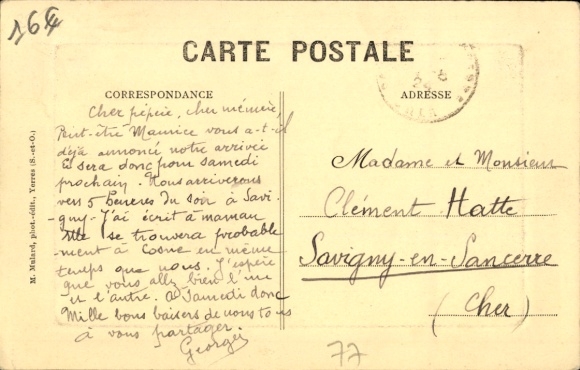 164
CARTE POSTALE
CORRESPONDANCE
ADRESSE
Cher pépère, chère mémère,
Peut-être Maurice vous a-t-il
déjà annoncé notre arrivée
Ce sera donc pour samedi
prochain. Nous arriverons
vers 5 heures du soir à Savi-
-gny-J'ai écrit à maman
elle se trouvera probable
-ment à Cosne en même
temps que nous. J'espère
que vous allez bien l'un
et l'autre. à Samedi donc
Mille bons baisers de nous tous
à vous partager.
Georges
Madame et Monsieur
Clément Hatte
Savigny-en-Sancerre
(Cher)
M. Mulard, phot.-édit., Yerres (S.-et-O.)
77